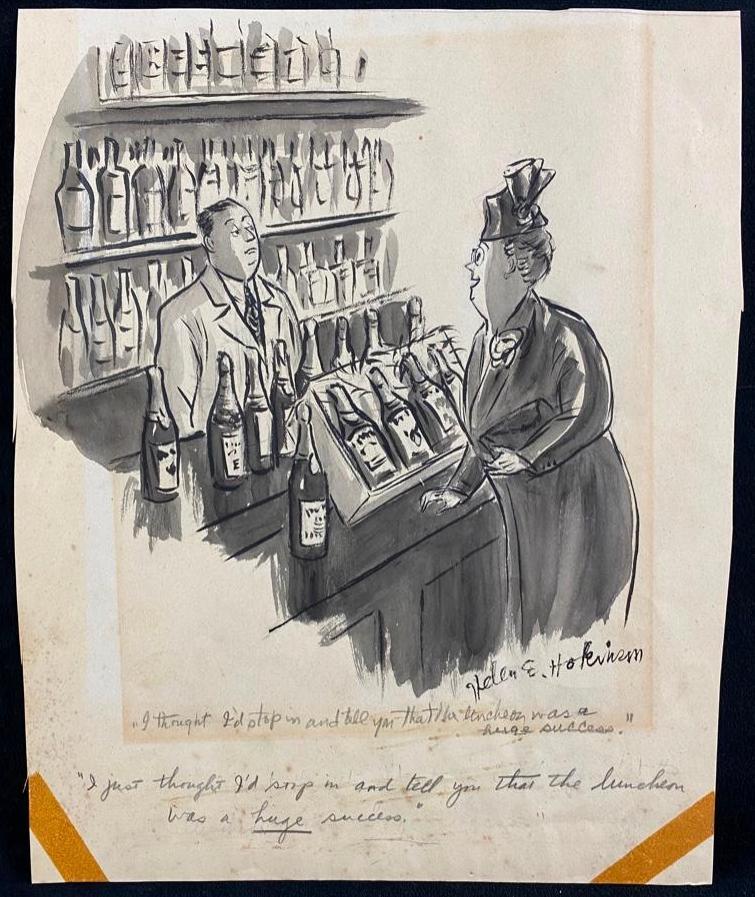 Helen E. Hokinson
"I thought I'd stop in and tell you that the luncheon was a
huge success."
"I just thought I'd stop in and tell you that the luncheon
was a huge success."